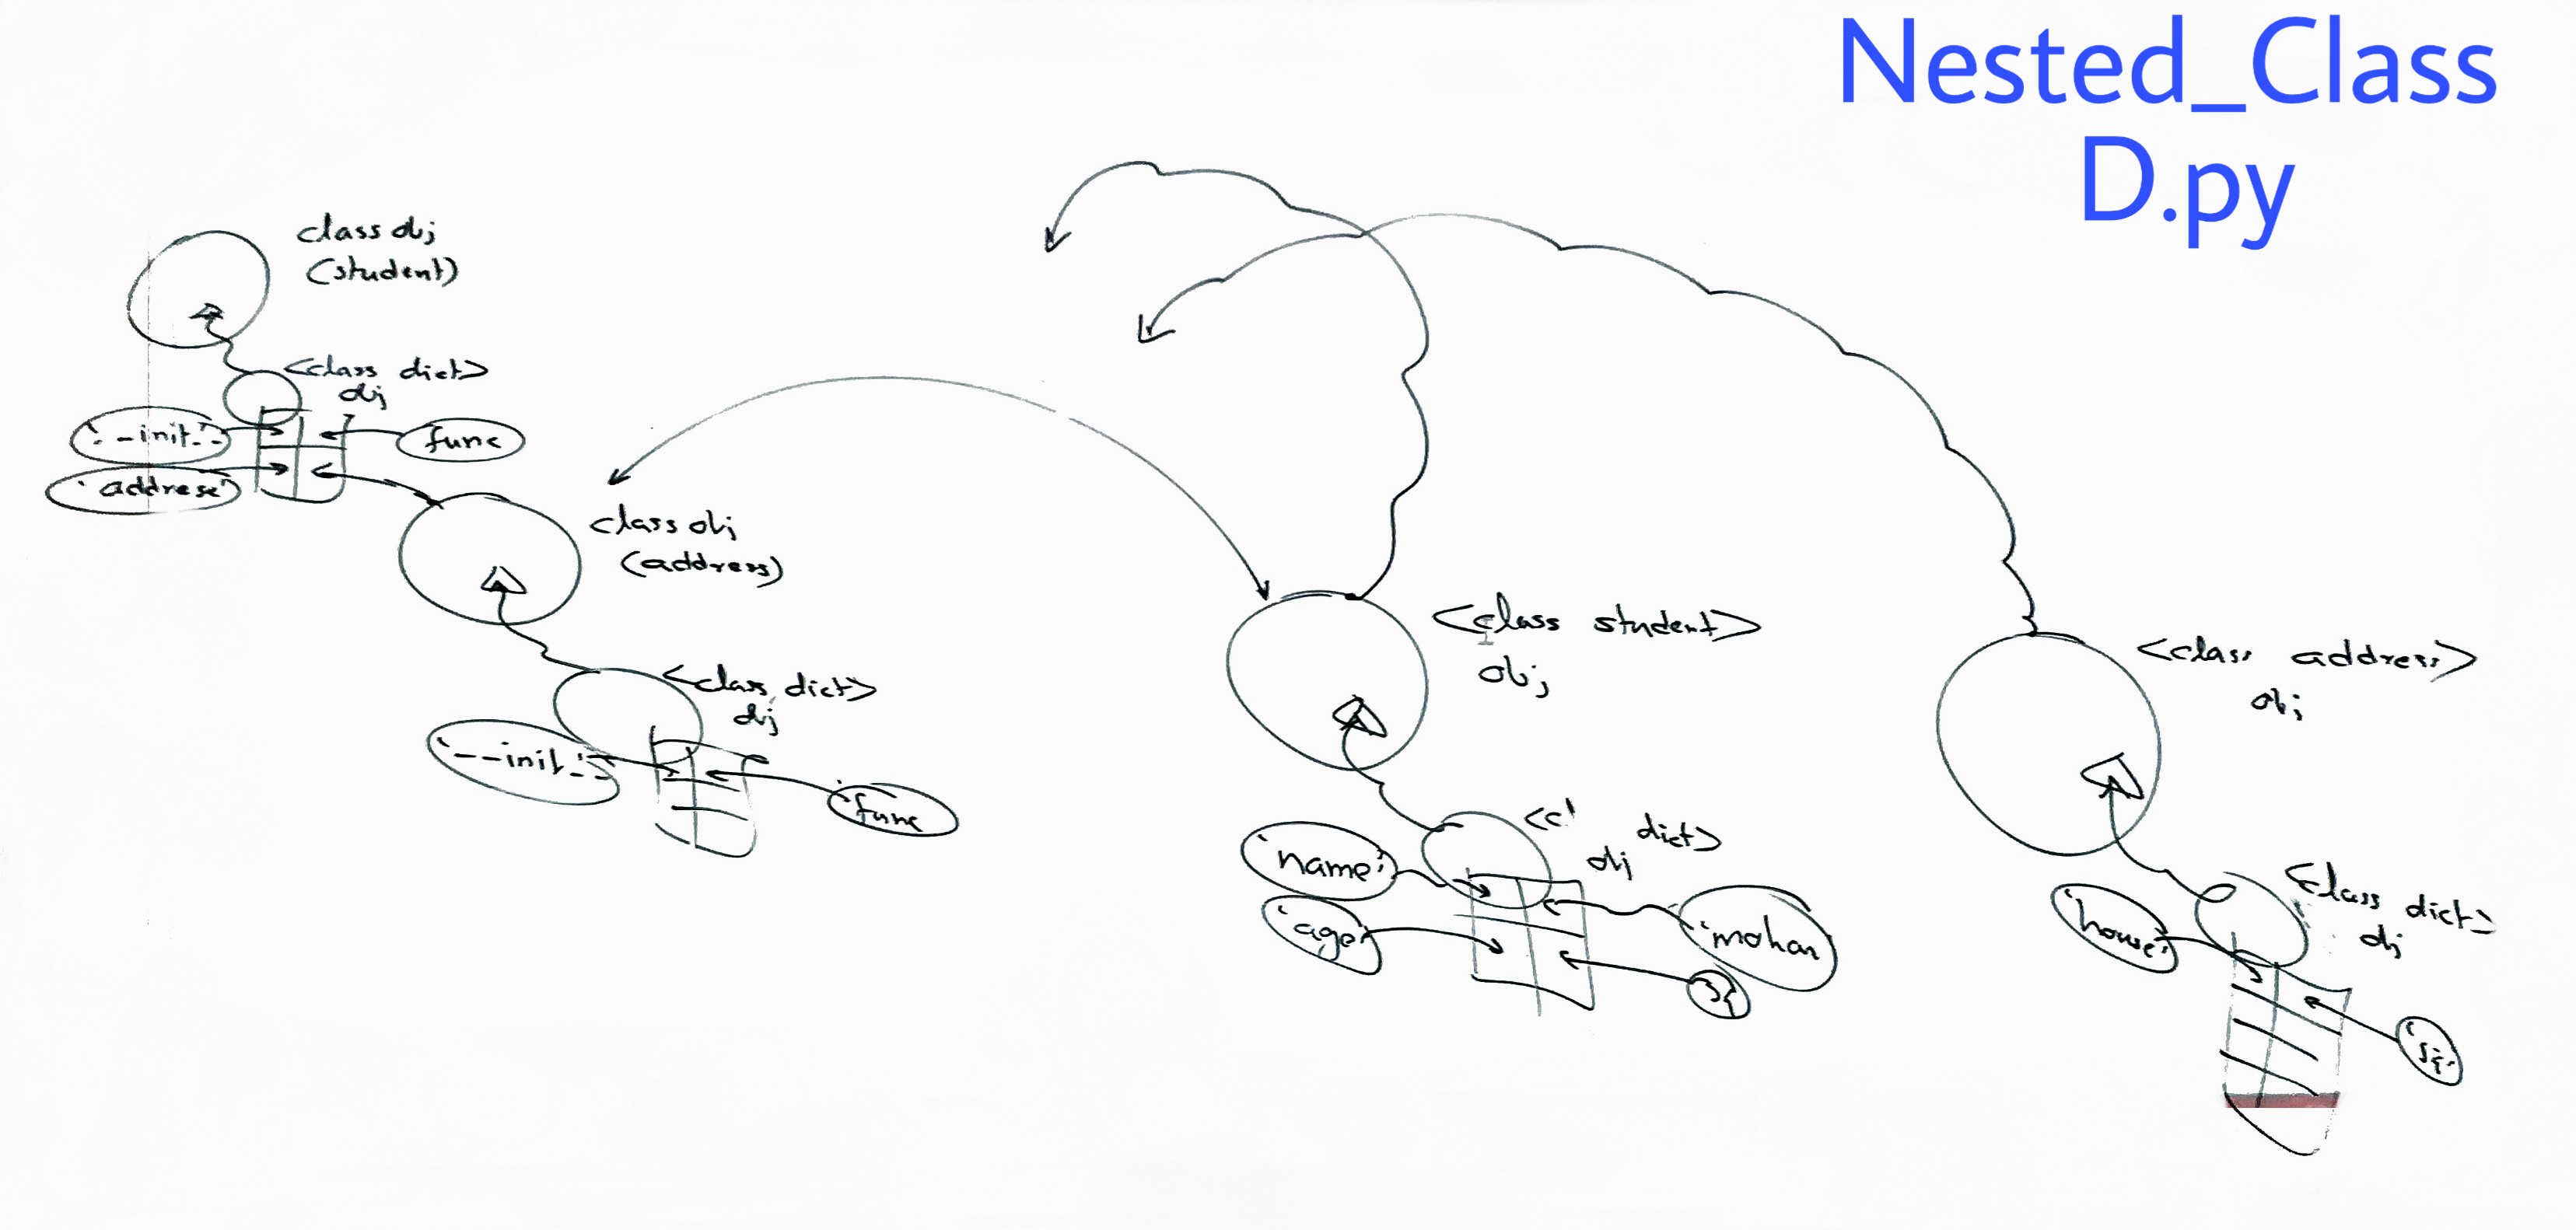 Nested_Class
D.py
class obj
(student)
<class dict>
obj
'__init__'
func
'address'
class obj
(address)
<class dict>
obj
'__init__'
func
<class student>
obj
dict>
obj
'name'
'age'
'mohan
<class address>
obj
<class dict>
obj
'house'